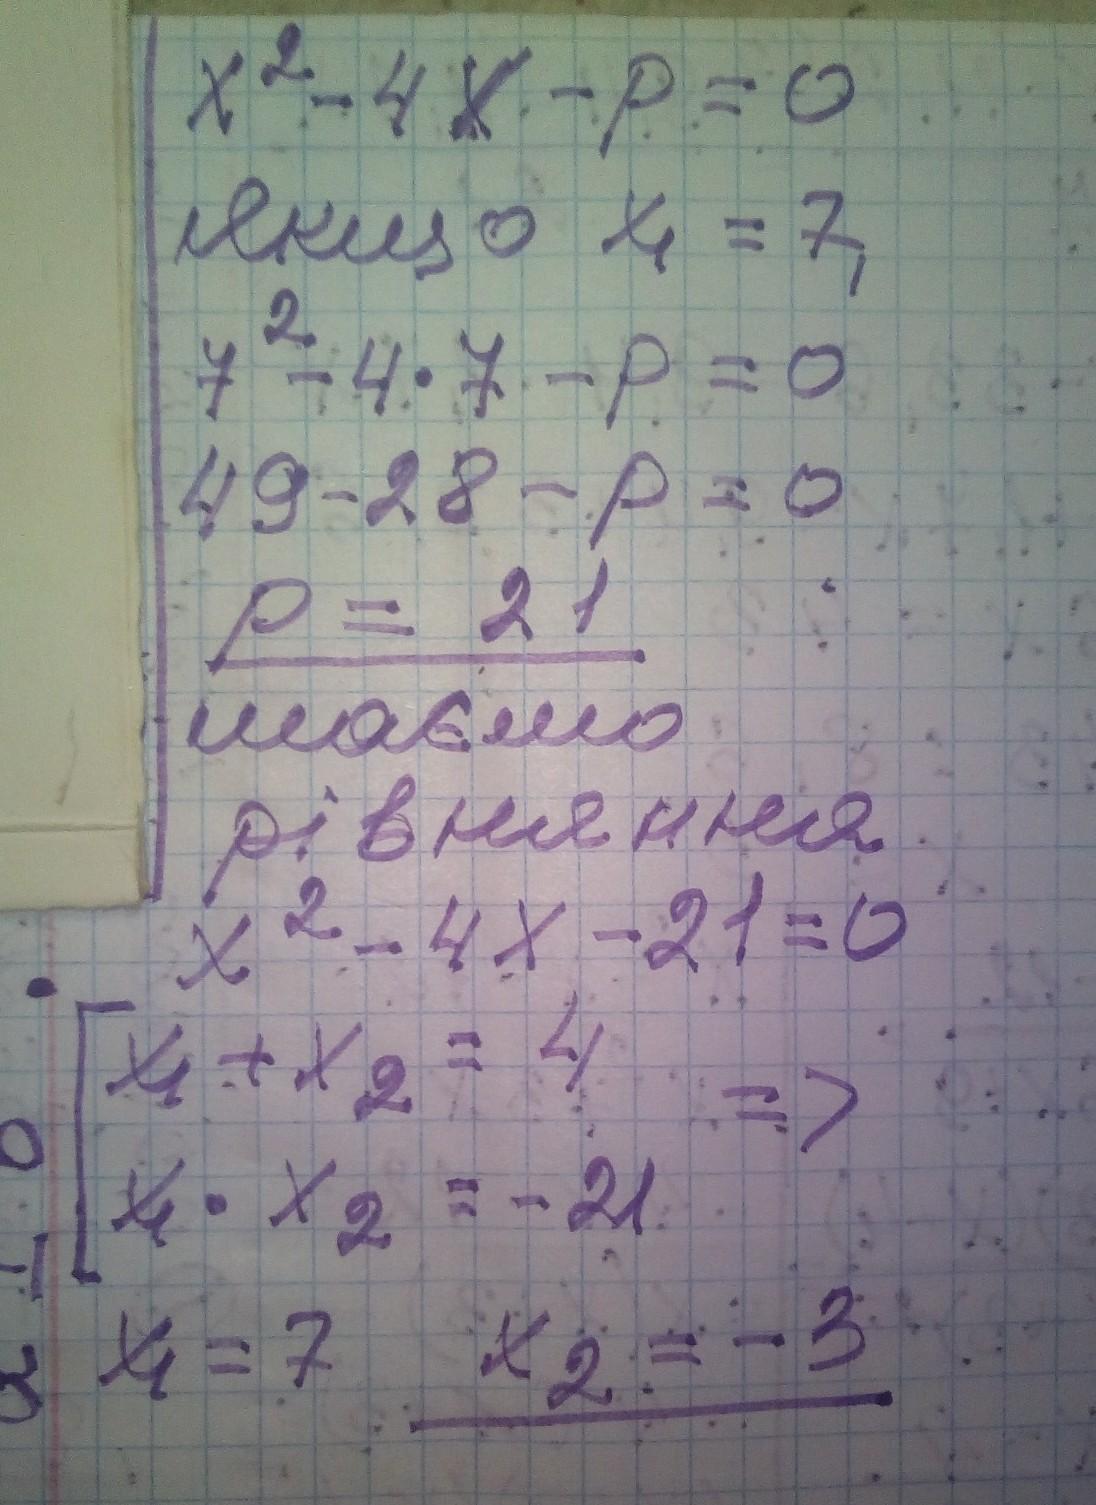 x² - 4x - p = 0
якщо x₁ = 7,
7² - 4·7 - p = 0
49 - 28 - p = 0
p = 21
маємо
рівняння
x² - 4x - 21 = 0
[ x₁ + x₂ = 4
x₁ · x₂ = -21 =>
x₁ = 7 x₂ = -3